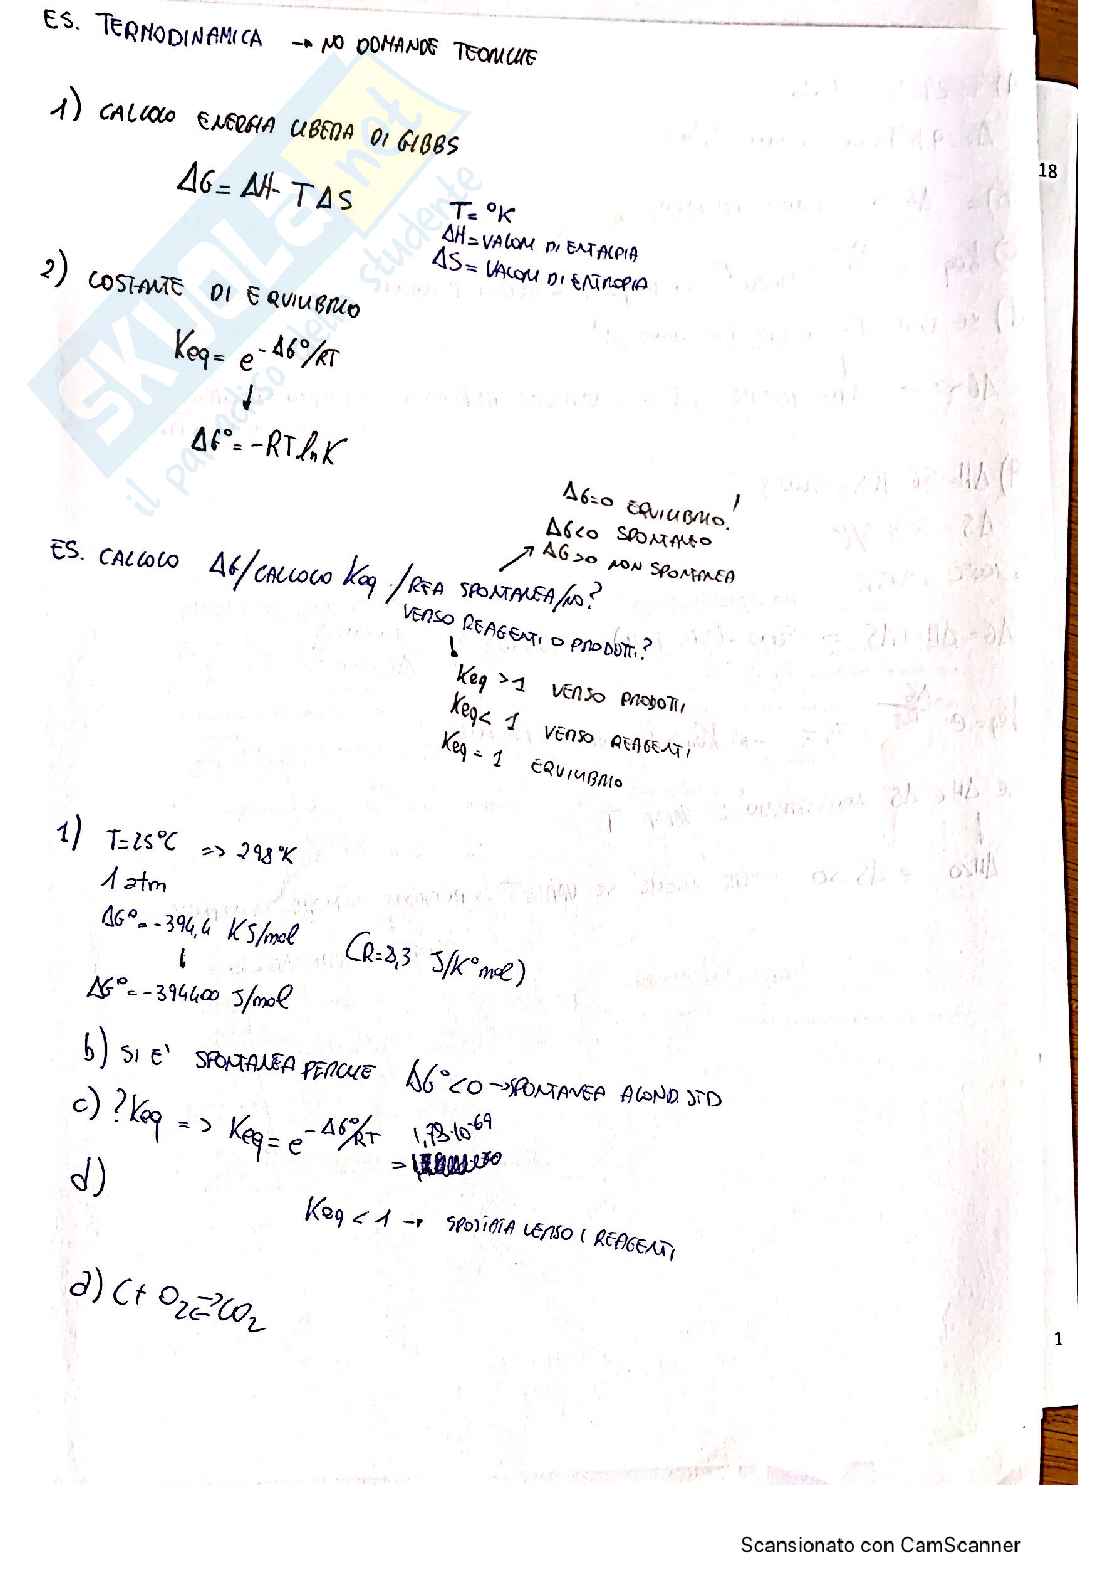 ES. TERMODINAMICA → NO DOMANDE TEORICHE
1) CALCOLO ENERGIA LIBERA DI GIBBS
ΔG = ΔH - TΔS
T = °K
ΔH = VALORI DI ENTALPIA
ΔS = VALORI DI ENTROPIA
2) COSTANTE DI EQUILIBRIO
Keq = e^-ΔG°/RT
↓
ΔG° = -RT ln K
ΔG=0 EQUILIBRIO!
ΔG<0 SPONTANEO
ΔG>0 NON SPONTANEA
ES. CALCOLO ΔG/CALCOLO Keq /REA SPONTANEA/NO?
VERSO REAGENTI O PRODOTTI?
↓
Keq >1 VERSO PRODOTTI
Keq < 1 VERSO REAGENTI
Keq = 1 EQUILIBRIO
1) T=25°C => 298°K
1 atm
ΔG° = -394,4 KJ/mol
(R=8,3 J/K°mol)
↓
ΔG° = -394400 J/mol
b) SI E' SPONTANEA PERCHE ΔG°<0 → SPONTANEA A COND. STD
c) ?Keq => Keq = e^-ΔG°/RT = 1,73·10^-69
d)
Keq < 1 → SPOSTATA VERSO I REAGENTI
a) C + O2 ⇌ CO2
18
1
SKUOLA.net
il paradiso dello studente
Scansionato con CamScanner